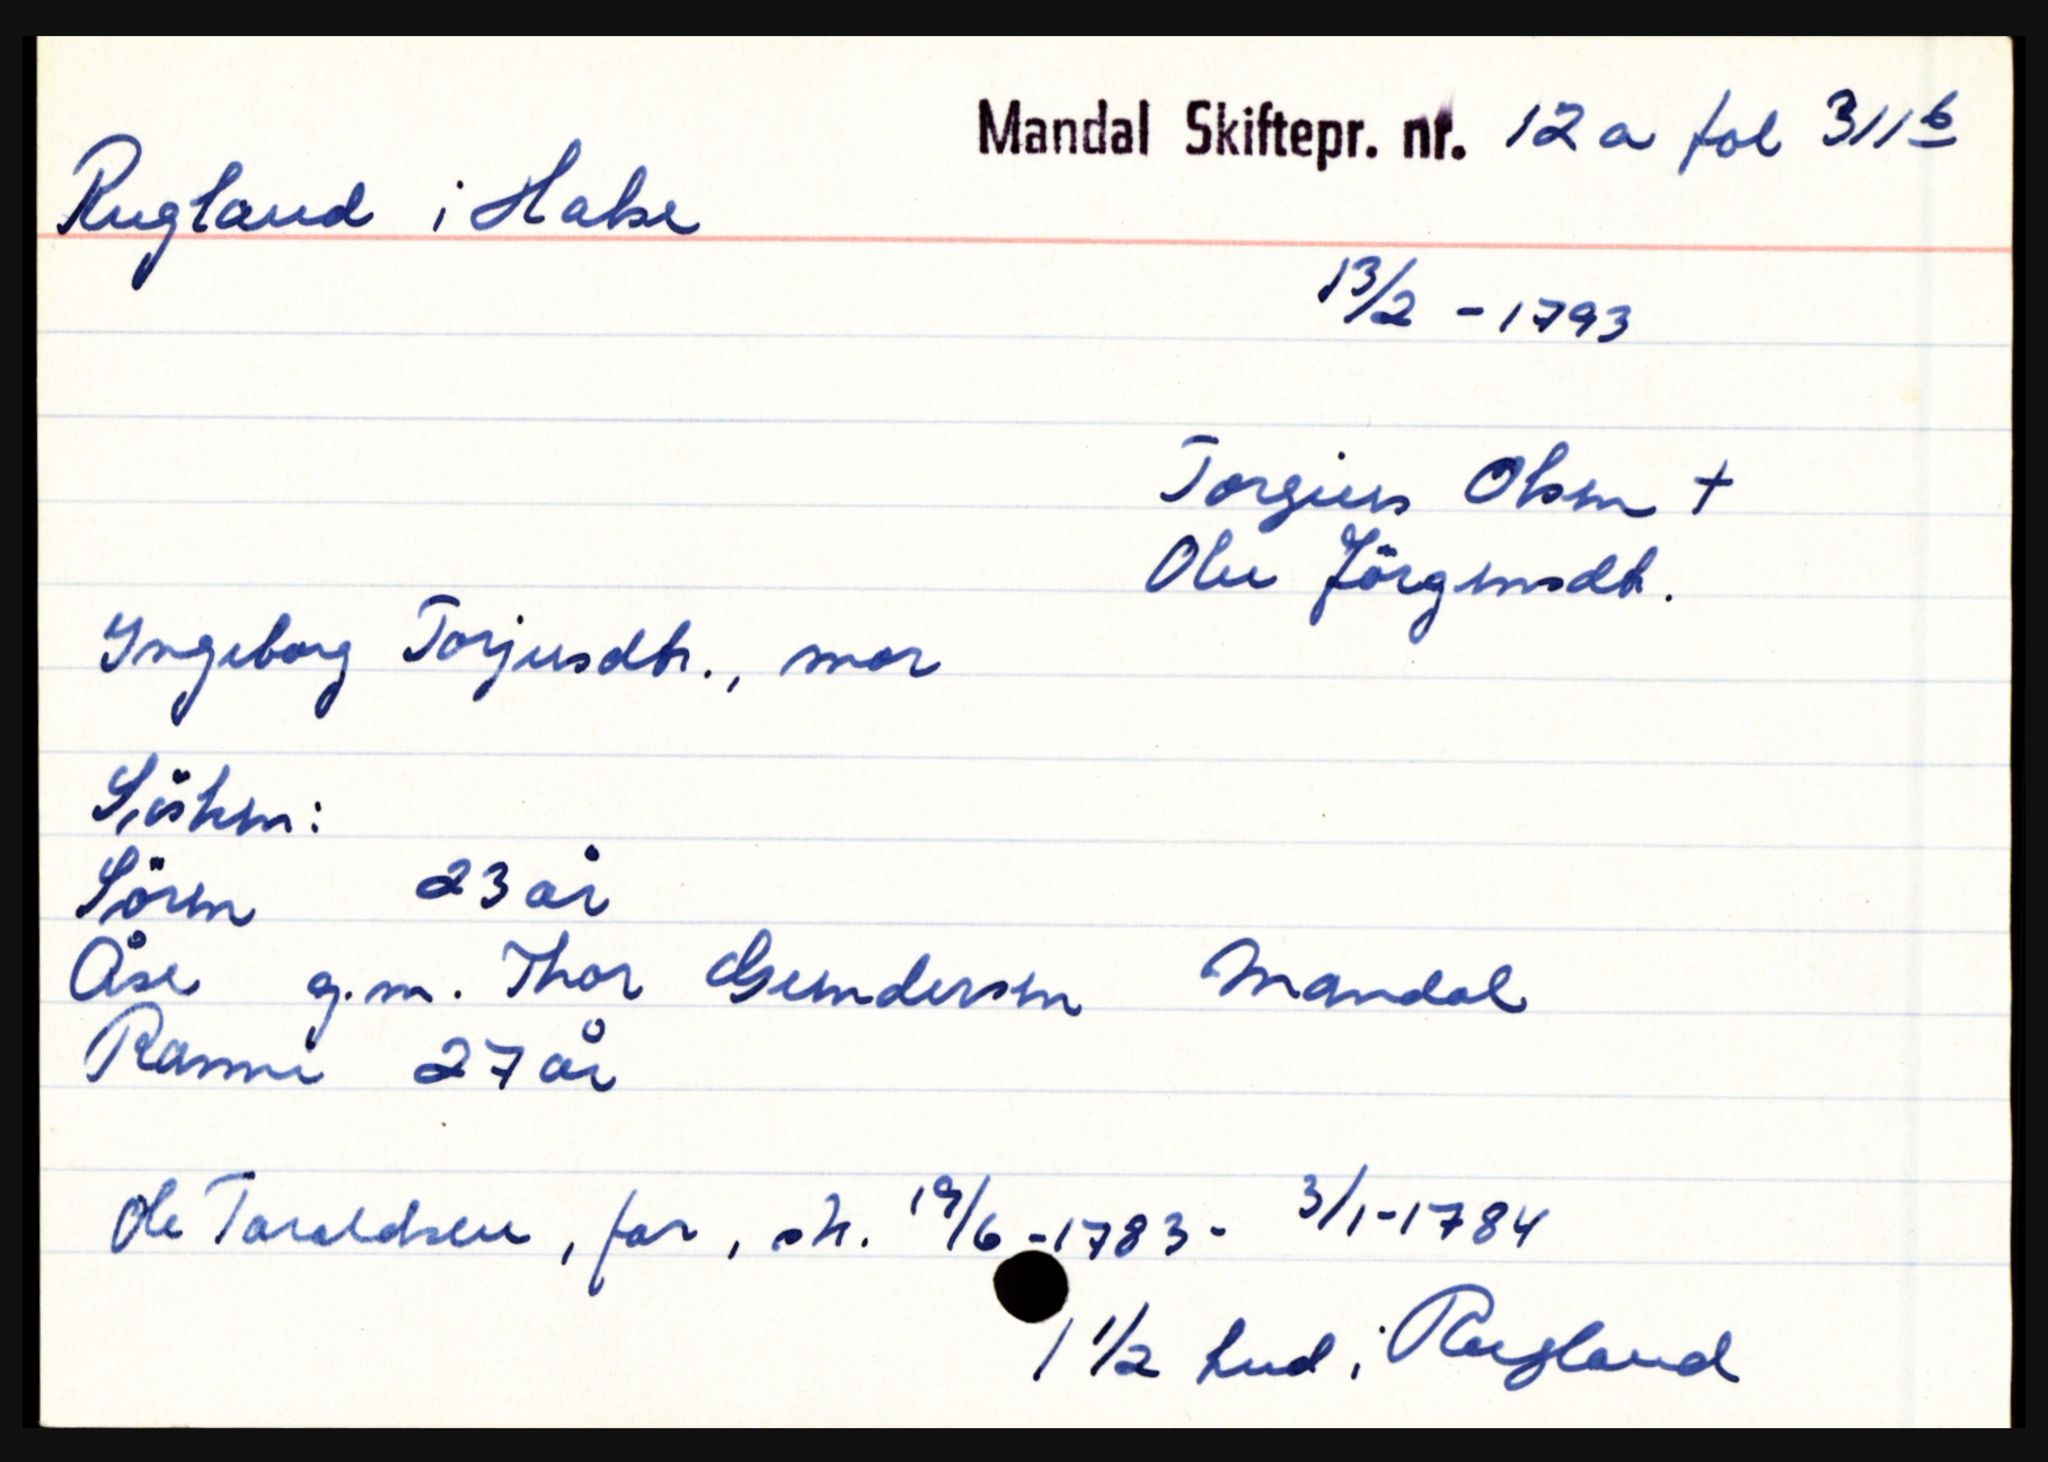 Mandal Skiftepr. nr. 12 a fol 311 b
Rugland i Halse
13/2 - 1793
Torgius Olsen +
Olu Jörgensdtr.
Yngeborg Torjusdtr., mor
Sösken:
Sören 23 år
Åse g.m. Thor Gundersen Mandal
Ranni 27 år
Ole Taraldsen, far, sk. 19/6 - 1783 - 3/1 - 1784
1 1/2 hud i Rugland